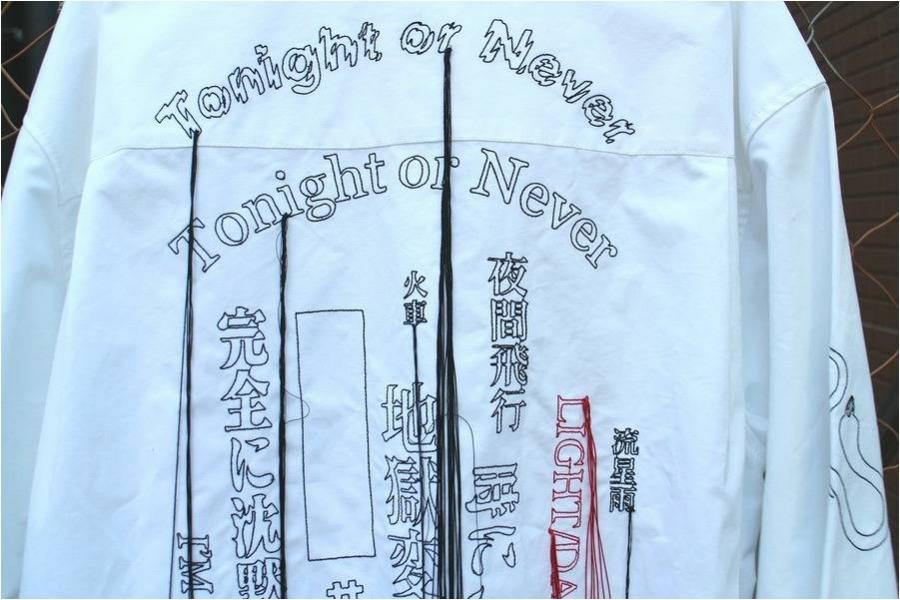 Tonight or Never
Tonight or Never
夜間飛行
火車
完全に沈黙
地獄変
LIGHT/DA
流星雨
I'M